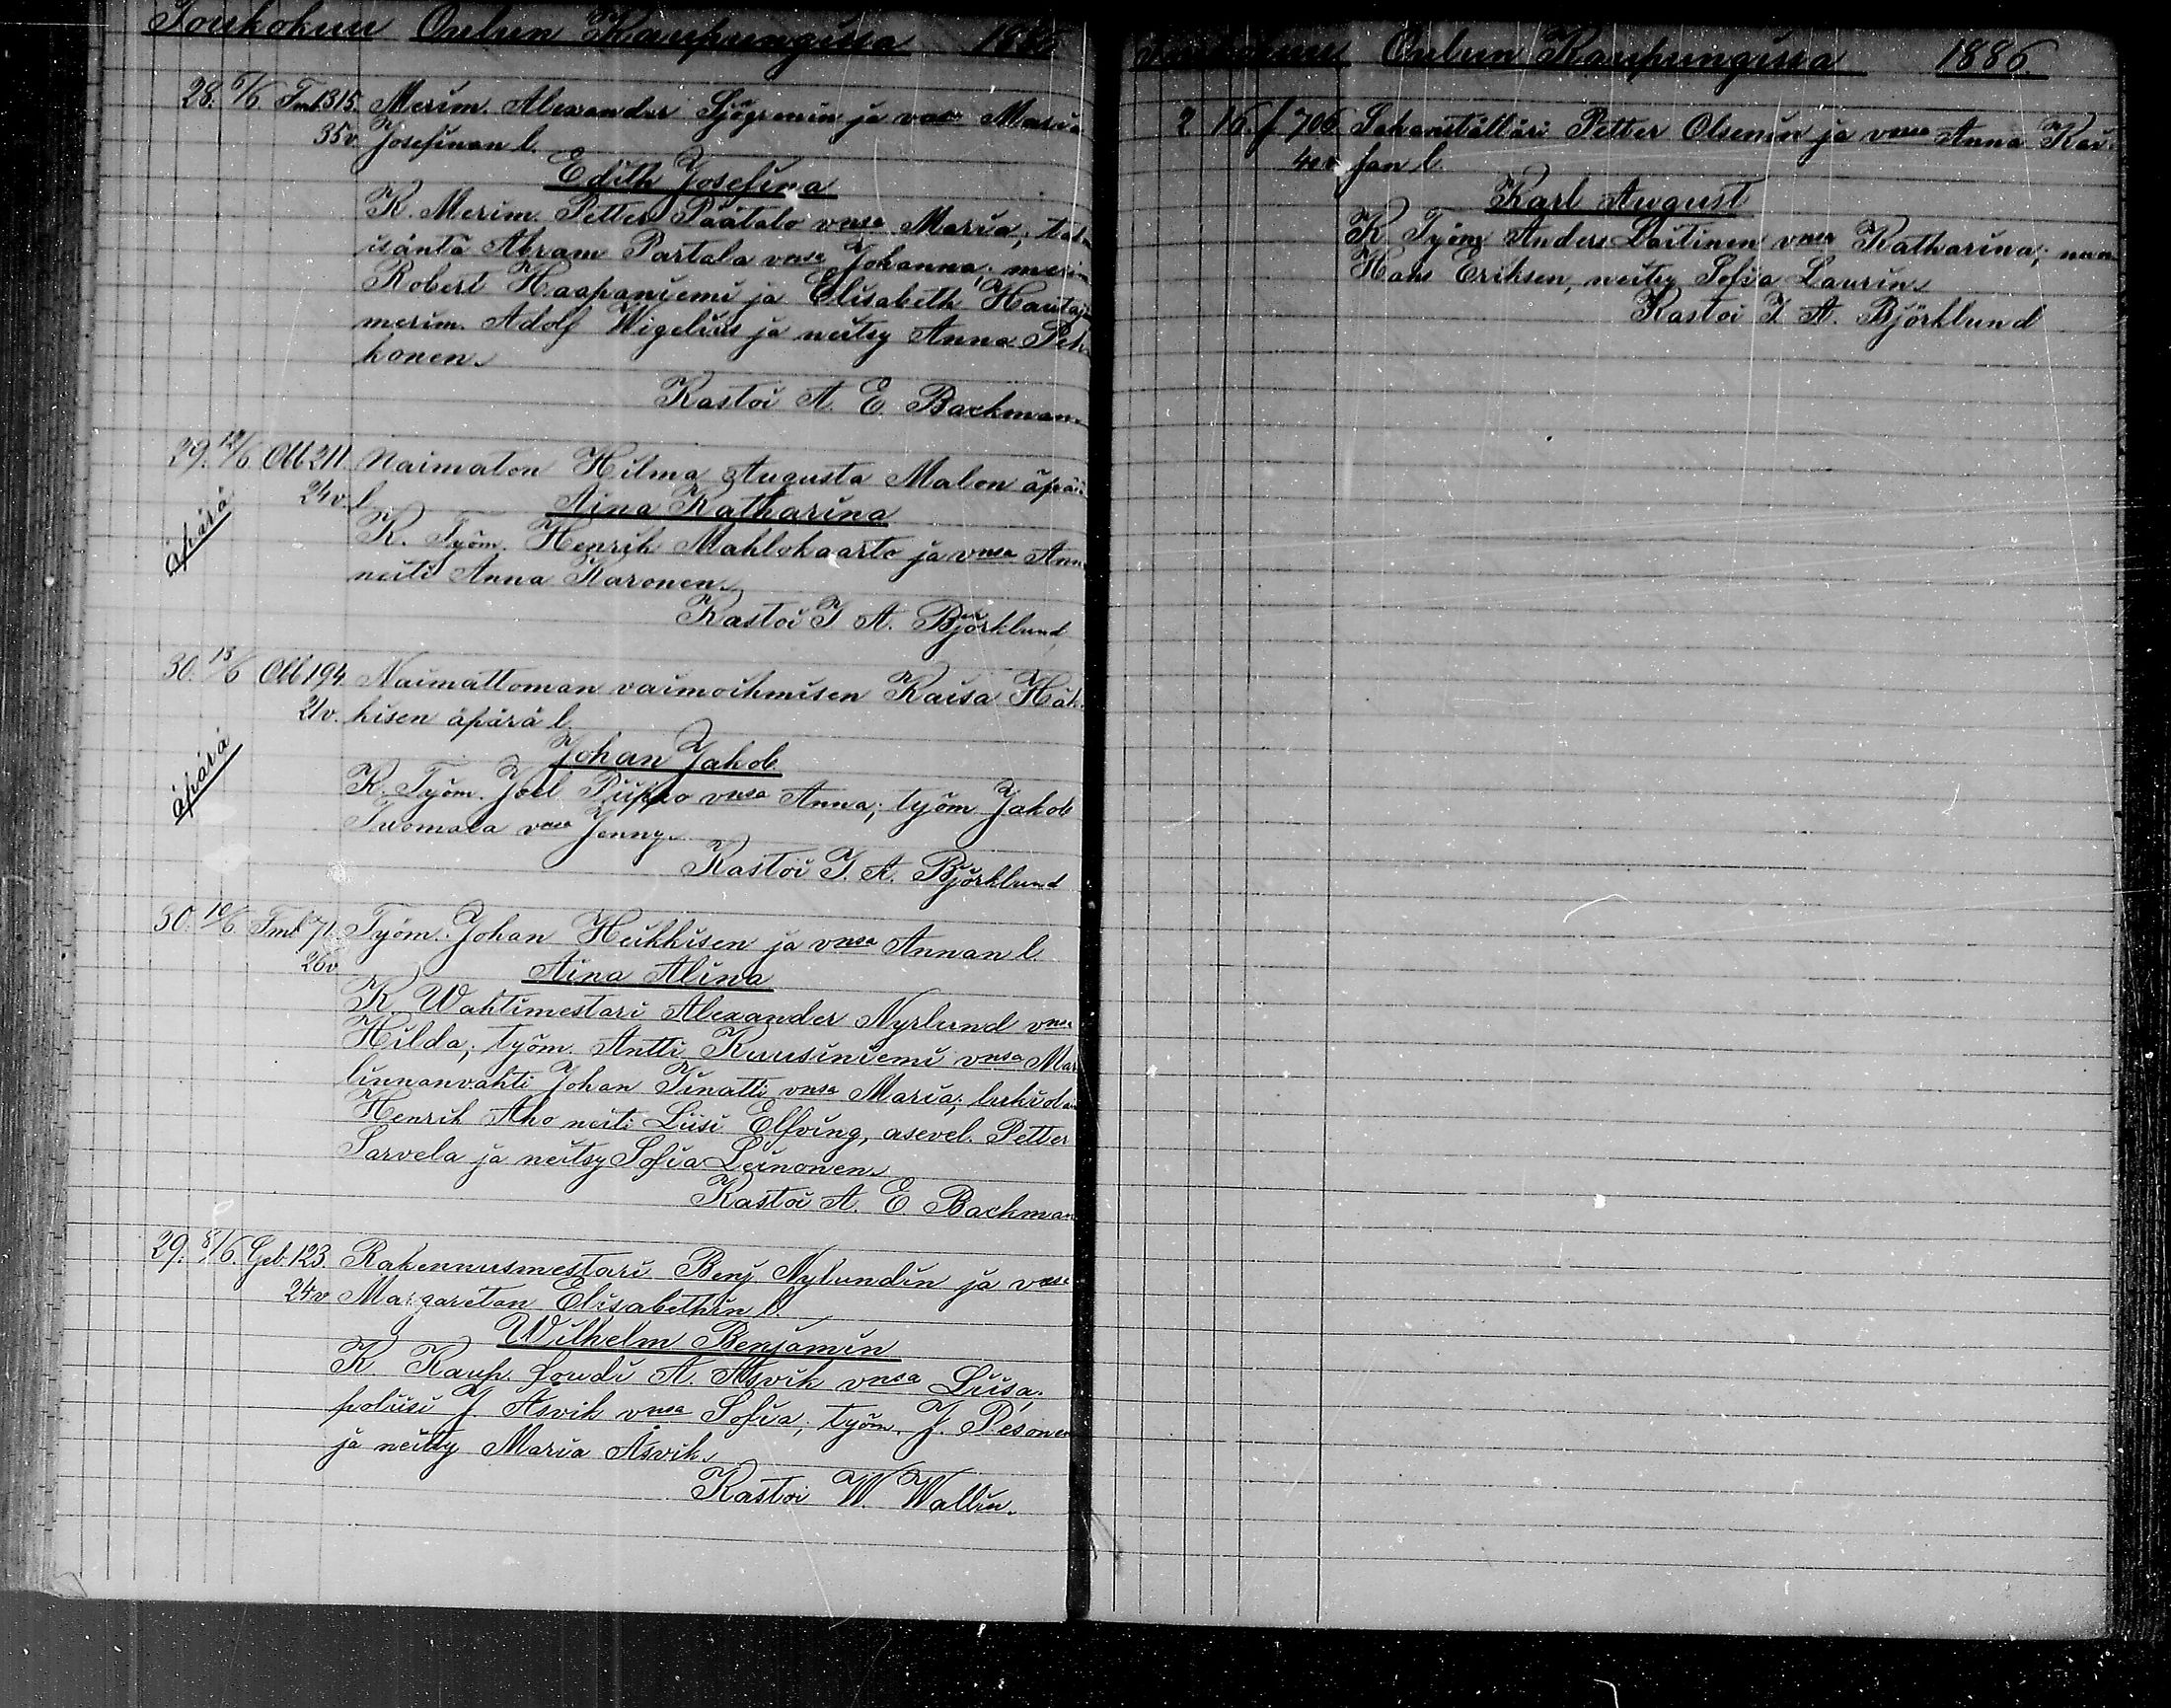 Toukokuu Oulun Kaupungissa 1886
28. 6/6 Tml 315. Merim. Alexander Sjögrenin ja vnsa Maria
35v Josefinan l.
Edith Josefina
K. Merim. Petter Päätalo vnsa Maria; tal.
isäntä Abram Partala vnsa Johanna; merim
Robert Haapaniemi ja Elisabeth Hautaj
merim. Adolf Wigelius ja neitsy Anna Pek
konen.
Kastoi A. E. Backman.
29. 12/6 Obb 211. Naimaton Hilma Augusta Malon äpärä
24v. l.
äpärä
Aina Katharina
K. Työm. Henrik Mahlokaarto ja vnsa Ann
neiti Anna Karonen.
Kastoi J. A. Björklund
30. 13/6 Obb 194. Naimattoman vaimoihmisen Kaisa Häk
21v. kisen äpärä l.
äpärä
Johan Jakob.
K. Työm. Joel Piippo vnsa Anna; työm. Jakob
Tuomala vnsa Jenny.
Kastoi J. A. Björklund
30. 10/6 Tml 71. Työm. Johan Heikkisen ja vnsa Annan l.
26v
Aina Alina
K. Wahtimestari Alexander Nyrlund vnsa
Hilda; työm. Antti Kuusiniemi vnsa Mar
linnanvahti Johan Tinatti vnsa Maria; lukiol
Henrik Aho neiti Liisi Elfving, asevel. Petter
Sarvela ja neitsy Sofia Leinonen.
Kastoi A. E. Backman
29. 8/6. Geb. 123. Rakennusmestari Benj. Nylundin ja vnsa
24v Margaretan Elisabethin l.
Wilhelm Benjamin
K. Kaup. fouti A. Åsvik vnsa Liisa;
poliisi J. Åsvik vnsa Sofia; työm. J. Pesonen
ja neitsy Maria Åsvik.
Kastoi W. Wallin.
Oulun Kaupungissa 1886.
2 16 f 706 Sahanställäri Petter Olsenin ja vnsa Anna Kai
40v san l.
Karl August
K. Työm. Anders Laitinen vnsa Katharina;
Hans Eriksen, neitsy Sofia Laurin.
Kastoi J. A. Björklund